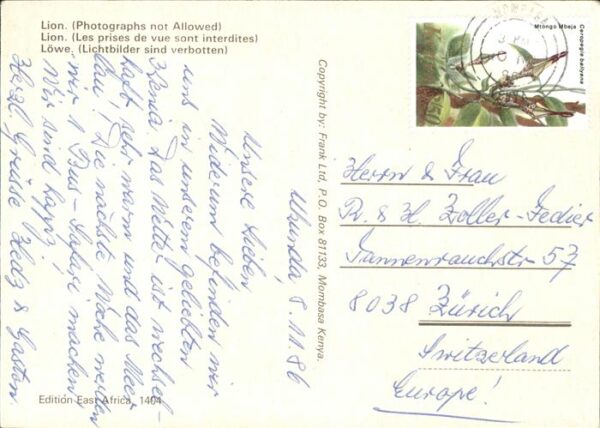 Lion. (Photographs not Allowed)
Lion. (Les prises de vue sont interdites)
Löwe. (Lichtbilder sind verbotten)
Ukunda, 8.11.86
Unsere Lieben
Widerum befinden wir
uns in unserem geliebten
Kenia. Das Wetter ist wechsel-
haft sehr warm und das Meer
lau! Die nächste Woche werden
wir 1 Bus-Safari machen.
Wir sind happy.
Herzl. Grüsse Hedy & Gaston
Edition East Africa, 1404
Copyright by: Frank Ltd, P.O. Box 81133, Mombasa Kenya.
Mtongo Mbeja
Ceropegia ballyana
Herrn & Frau
R. & H. Zoller-Fedier
Tannenrauchstr 57
8038 Zürich
Switzerland
Europe!